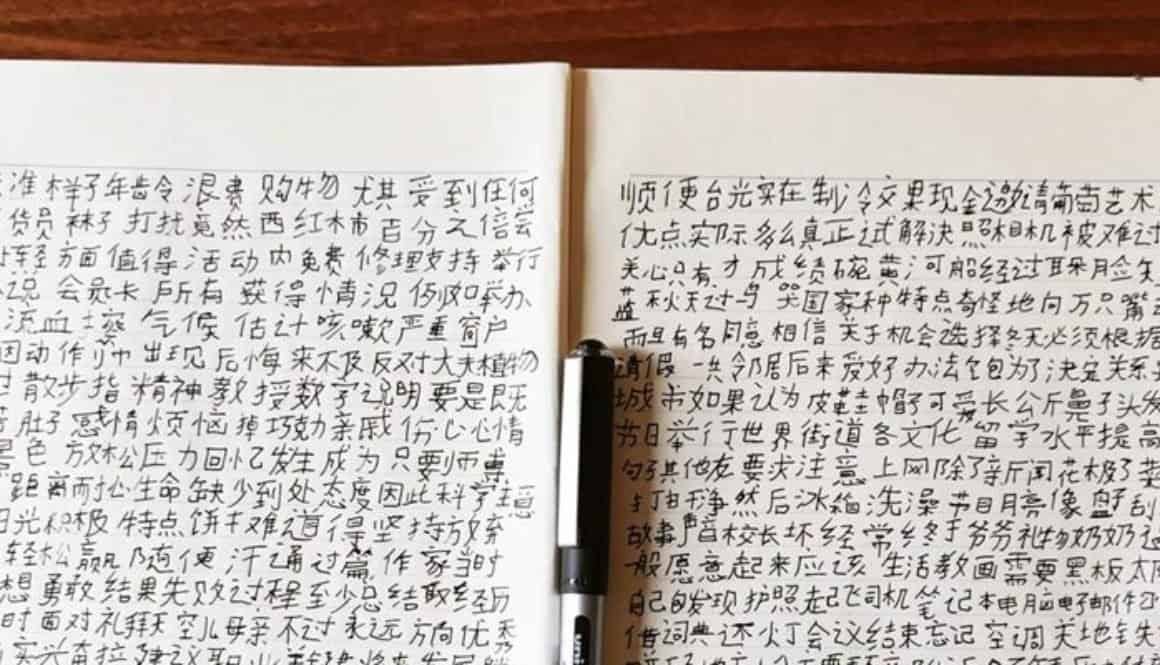 准样子年龄令浪费 购物 尤其受到任何
货员袜子打扰竟然西红柿百分之倍尝
轻方面值得活动内免费修理支持举行
说会员长所有获得情况例如举办
流血 气候估计咳嗽严重窗户
因动作师出现后悔来不及反对大夫植物
散步指精神教授数字说明要是既
肚子感情烦恼掉巧克亲戚伤心心情
景色放松压力回忆发生成为只要师
距离而扯生命缺少到处态度因此科学
阳光积极特点饼干难道得坚持放弃
轻松赢随便汗通过篇作家当时
想勇敢结果失败过程至少总结取经历
时面对礼拜天空儿母亲不过永远方向优秀
建议职业
顺便台光实在制冷交果现金邀请葡萄艺术
优点实际多么真正试解决照相机被难过
关心只有才成绩碗黄河船经过耳朵脸
蓝秋天过马 哭国家种特点奇怪地向万只嘴
而且有名同意相信关于机会选择冬天必须根据
请假一共邻居后来爱好办法包为了决定关系
城市如果认为皮鞋帽子可爱长公斤鼻子头发
节日举行世界街道各文化留学水平提高
句子其他友要求注意上网除了新闻花极了
打扫干净然后冰箱洗澡节目月亮像 刮
故事声音校长坏经常终于爷爷礼物奶奶
般愿意起来应该生活教画需要黑板太阳
自己的发现护照起飞司机笔记本电脑电子邮件
借词典还灯会议结束忘记空调关地铁